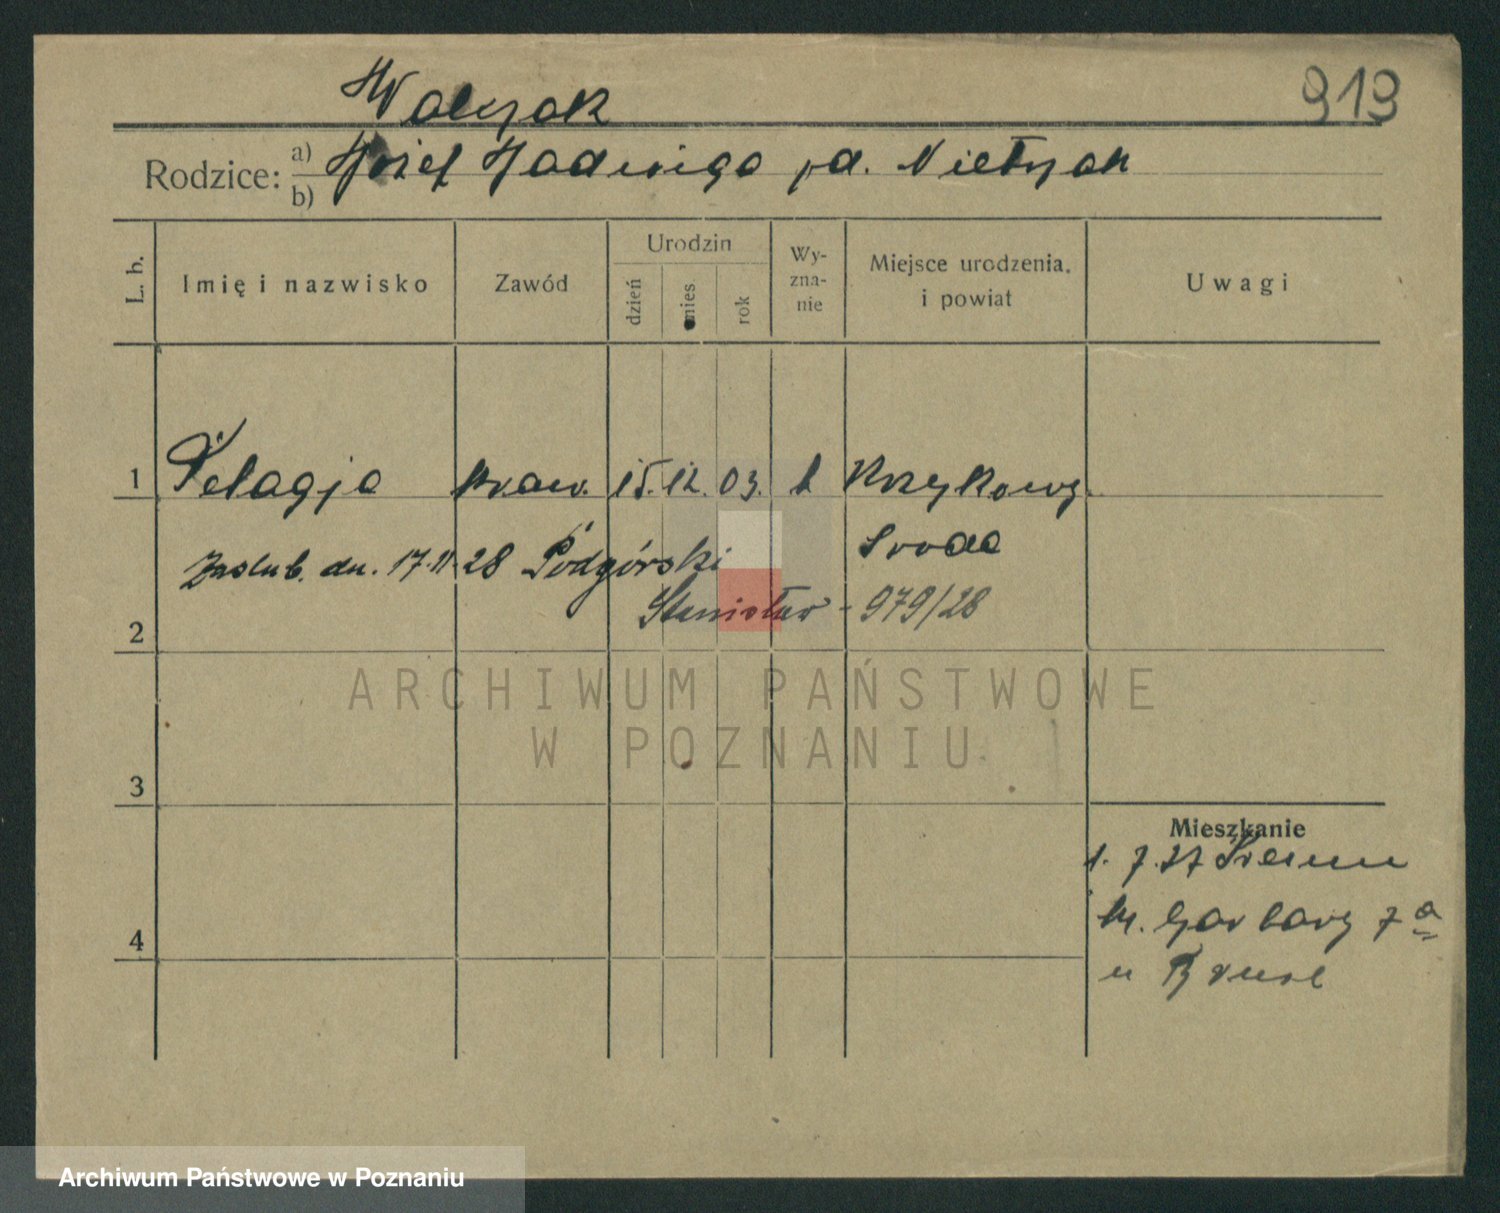 913
Walczak
Rodzice: a) Józef Jadwiga yd. Nietzak
b)
L. b. Imię i nazwisko Zawód Urodzin dzień mies rok Wy-zna-nie Miejsce urodzenia. i powiat Uwagi
1 Pelagja kraw. 15. 12. 03. k Krzykowy
Środa
Zaślub. dn. 17.11.28 Podgórski
Stanisław - 979/28
2
3
4
Mieszkanie
1. 7. 27
M. Garbary 7 a
u
ARCHIWUM PAŃSTWOWE
W POZNANIU
Archiwum Państwowe w Poznaniu